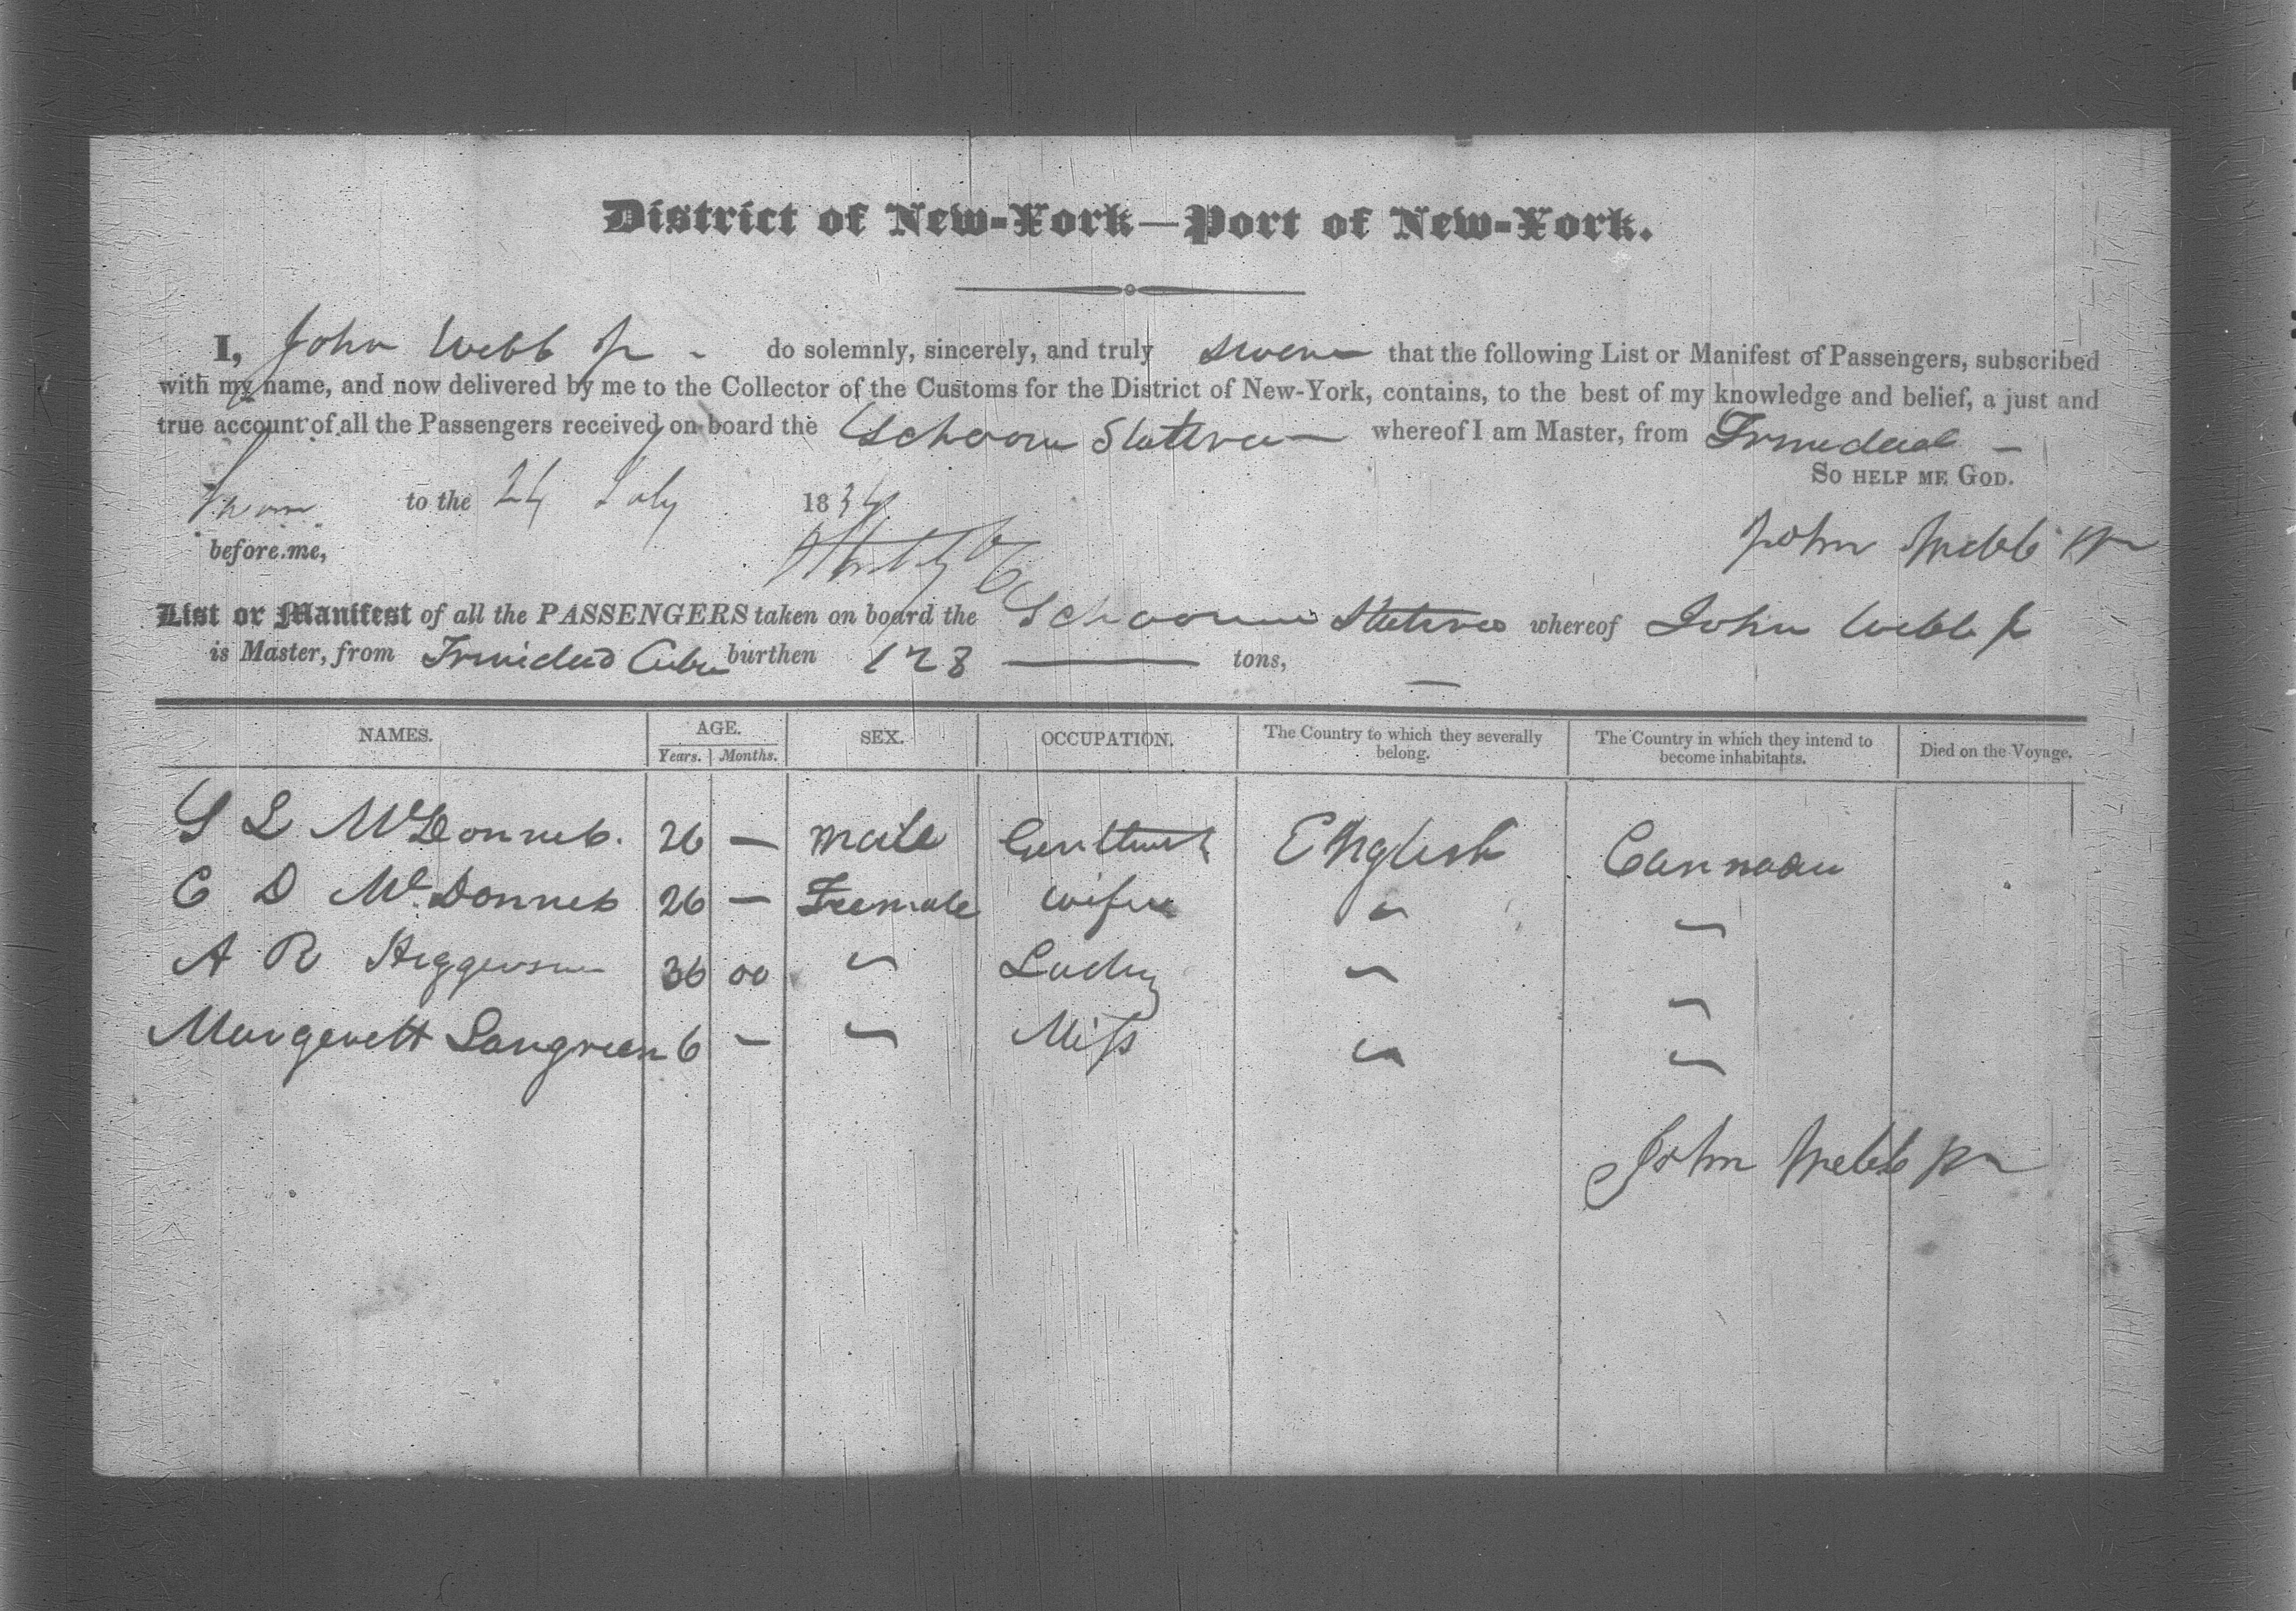 District of New-York—Port of New-York.
I, John Webb Jr - do solemnly, sincerely, and truly swear that the following List or Manifest of Passengers, subscribed
with my name, and now delivered by me to the Collector of the Customs for the District of New-York, contains, to the best of my knowledge and belief, a just and
true account of all the Passengers received on board the whereof I am Master, from Trinidad —
So help me God.
Sworn to the 24 July 1834
before me,
John Webb Jr
List or Manifest of all the PASSENGERS taken on board the whereof John Webb Jr
is Master, from Trinidad Cuba burthen 128 — tons,
NAMES. AGE. SEX. OCCUPATION. The Country to which they severally belong. The Country in which they intend to become inhabitants. Died on the Voyage.
Years. Months.
S L McDonnell. 26 — male English
C D McDonnell 26 — Feemale wife " "
A R 36 00 " Lady " "
Margerett Langreen 6 — " Miss " "
John Webb Jr